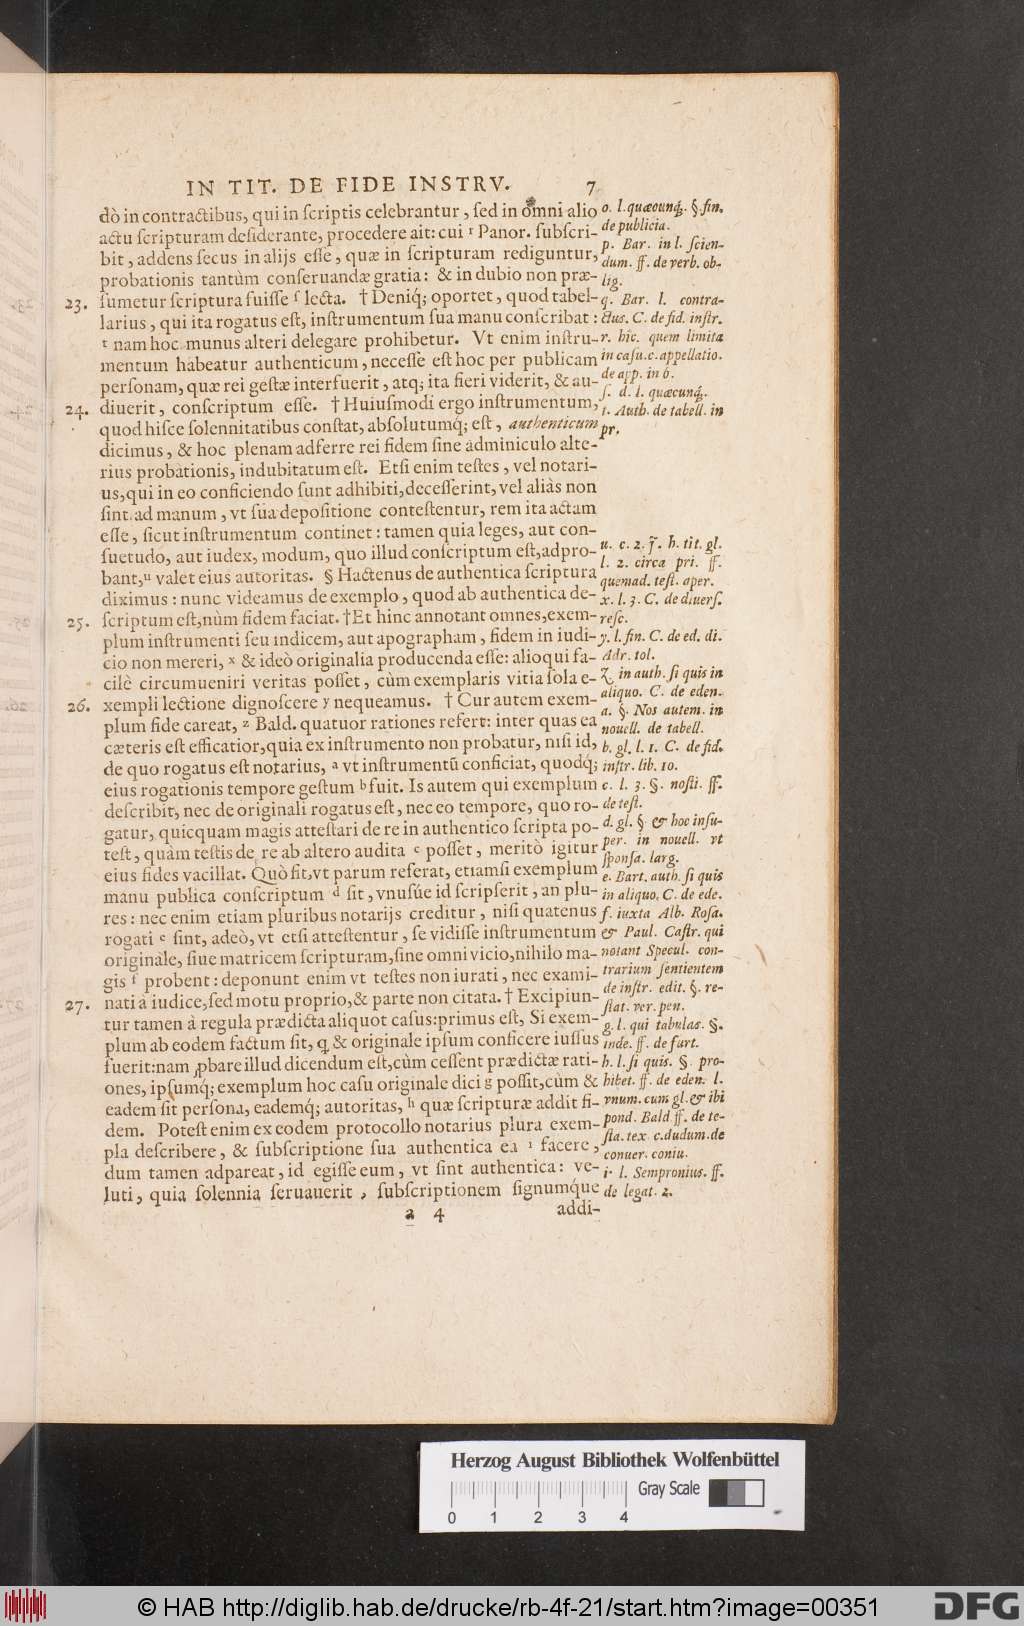 IN TIT. DE FIDE INSTRV. 7
dò in contractibus, qui in scriptis celebrantur, sed in omni alio
actu scripturam desiderante, procedere ait: cui r Panor. subscri-
bit, addens secus in alijs esse, quæ in scripturam rediguntur,
probationis tantùm conseruandæ gratia: & in dubio non præ-
23. sumetur scriptura fuisse s lecta. † Deniq́; oportet, quod tabel-
larius, qui ita rogatus est, instrumentum sua manu conscribat:
t nam hoc munus alteri delegare prohibetur. Vt enim instru-
mentum habeatur authenticum, necesse est hoc per publicam
personam, quæ rei gestæ interfuerit, atq; ita fieri viderit, & au-
24. diuerit, conscriptum esse. † Huiusmodi ergo instrumentum,
quod hisce solennitatibus constat, absolutumq́; est, authenticum
dicimus, & hoc plenam adferre rei fidem sine adminiculo alte-
rius probationis, indubitatum est. Etsi enim testes, vel notari-
us, qui in eo conficiendo sunt adhibiti, decesserint, vel aliàs non
sint ad manum, vt sua depositione contestentur, rem ita actam
esse, sicut instrumentum continet: tamen quia leges, aut con-
suetudo, aut iudex, modum, quo illud conscriptum est, adpro-
bant, u valet eius autoritas. § Hactenus de authentica scriptura
diximus: nunc videamus de exemplo, quod ab authentica de-
25. scriptum est, nùm fidem faciat. † Et hinc annotant omnes, exem-
plum instrumenti seu indicem, aut apographam, fidem in iudi-
cio non mereri, x & ideò originalia producenda esse: alioqui fa-
cilè circumueniri veritas posset, cùm exemplaris vitia sola e-
26. xempli lectione dignoscere y nequeamus. † Cur autem exem-
plum fide careat, z Bald. quatuor rationes refert: inter quas ea
cæteris est efficatior, quia ex instrumento non probatur, nisi id,
de quo rogatus est notarius, a vt instrumentū conficiat, quodq́;
eius rogationis tempore gestum b fuit. Is autem qui exemplum
describit, nec de originali rogatus est, nec eo tempore, quo ro-
gatur, quicquam magis attestari de re in authentico scripta po-
test, quàm testis de re ab altero audita c posset, meritò igitur
eius fides vacillat. Quò fit, vt parum referat, etiamsi exemplum
manu publica conscriptum d sit, vnusúe id scripserit, an plu-
res: nec enim etiam pluribus notarijs creditur, nisi quatenus
rogati e sint, adeò, vt etsi attestentur, se vidisse instrumentum
originale, siue matricem scripturam, sine omni vicio, nihilo ma-
gis f probent: deponunt enim vt testes non iurati, nec exami-
27. nati à iudice, sed motu proprio, & parte non citata. † Excipiun-
tur tamen à regula prædicta aliquot casus: primus est, Si exem-
plum ab eodem factum sit, q & originale ipsum conficere iussus
fuerit: nam ꝓbare illud dicendum est, cùm cessent prædictæ rati-
ones, ipsumq́; exemplum hoc casu originale dici g possit, cùm &
eadem sit persona, eademq́; autoritas, h quæ scripturæ addit fi-
dem. Potest enim ex eodem protocollo notarius plura exem-
pla describere, & subscriptione sua authentica ea i facere,
dum tamen adpareat, id egisse eum, vt sint authentica: ve-
luti, quia solennia seruauerit, subscriptionem signumq́ue
a 4 addi-
o. l. quæcunq́. §. fin.
de publicia.
p. Bar. in l. scien-
dum. ff. de verb. ob-
lig.
q. Bar. l. contra-
ctus. C. de fid. instr.
r. hic. quem limita
in casu. c. appellatio.
de app. in 6.
s. d. l. quæcunq́.
t. Auth. de tabell. in
pr.
u. c. 2. j. h. tit. gl.
l. 2. circa pri. ff.
quemad. test. aper.
x. l. 3. C. de diuers.
resc.
y. l. fin. C. de ed. di.
Adr. tol.
z. in auth. si quis in
aliquo. C. de eden.
a. §. Nos autem. in
nouell. de tabell.
b. gl. l. 1. C. de fid.
instr. lib. 10.
c. l. 3. §. nosti. ff.
de test.
d. gl. § & hoc insu-
per. in nouell. vt
sponsa. larg.
e. Bart. auth. si quis
in aliquo. C. de ede.
f. iuxta Alb. Rosa.
& Paul. Castr. qui
notant Specul. con-
trarium sentientem
de instr. edit. §. re-
stat. ver. pen.
g. l. qui tabulas. §.
inde. ff. de furt.
h. l. si quis. §. pro-
hibet. ff. de eden. l.
vnum. cum gl. & ibi
pond. Bald ff. de te-
sta. tex c. dudum. de
conuer. coniu.
i. l. Sempronius. ff.
de legat. 2.
Herzog August Bibliothek Wolfenbüttel
Gray Scale
0 1 2 3 4
© HAB http://diglib.hab.de/drucke/rb-4f-21/start.htm?image=00351
DFG